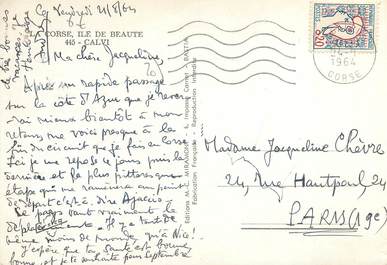 Ce Vendredi 21/8/64
CORSE, ILE DE BEAUTE
445 - CALVI
Ma chère Jacqueline,
Après un rapide passage
sur la côte d'Azur que je rever-
rai mieux bientôt à mon
retour, me voici presque à la
fin du circuit que je fais en Corse.
Ici je me repose 1 jour puis la
dernière et la plus pittoresque
étape qui me ramènera au point
de départ c'est à dire Ajaccio.
Le pays vaut vraiment le
déplacement. Il y a tout de
même moins de monde qu'à Nice!
J'espère que ta santé est bonne,
et je te souhaite pour septembre
de très bonnes
vacances.
Madame Jacqueline Chèvre
24, rue Hautpoul 24
PARIS (19e)
0,25
1964
CORSE